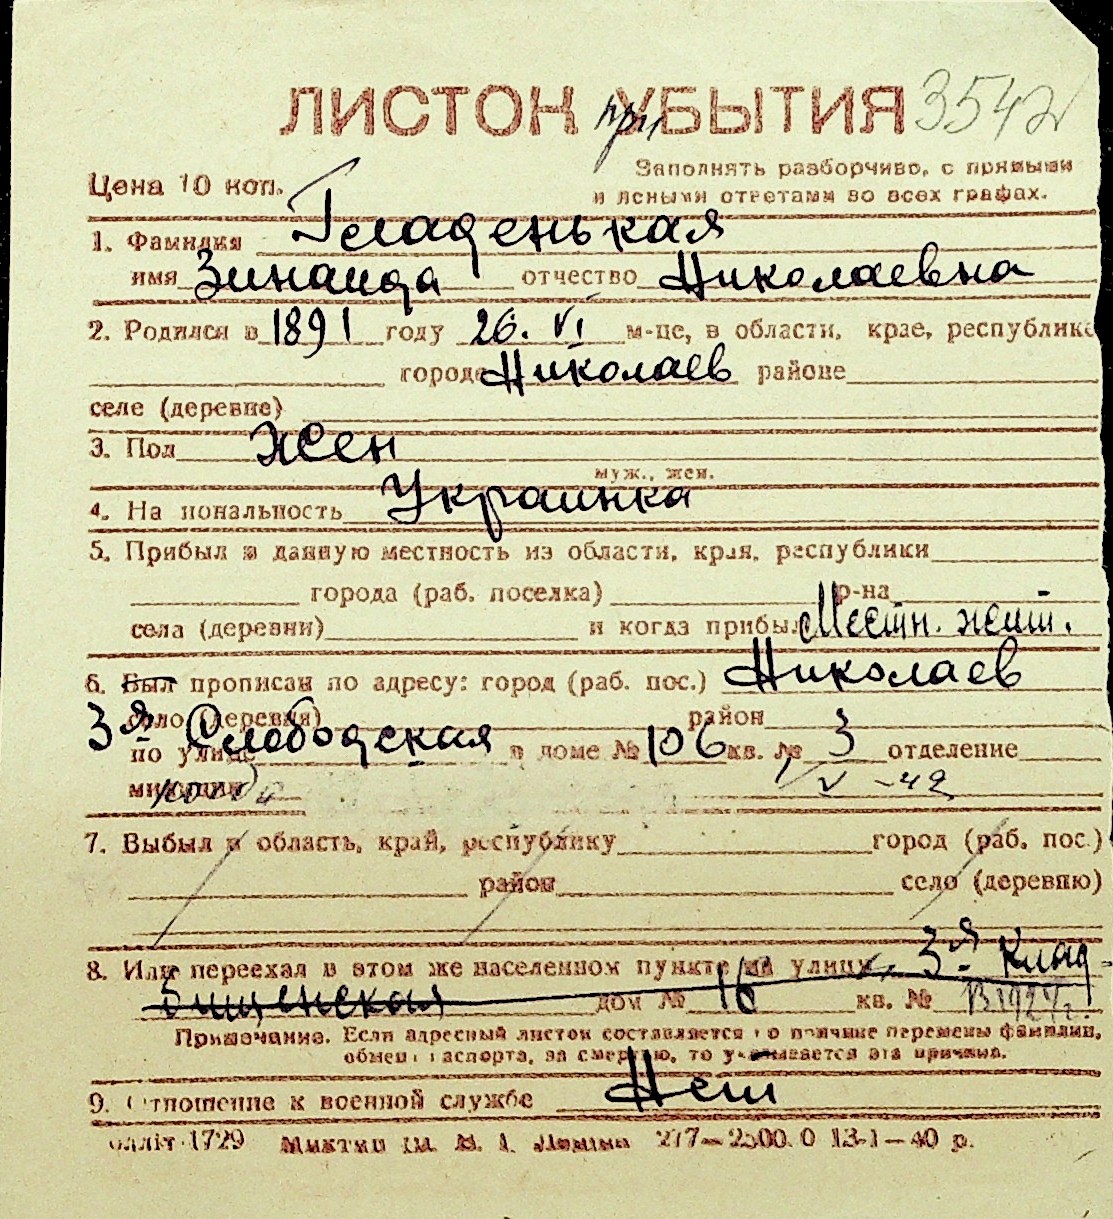 ЛИСТОК при УБЫТИЯ 3542
Заполнять разборчиво, с прямыми
Цена 10 коп.
и ясными ответами во всех графах.
1. Фамилия Гладенькая
имя Зинаида отчество Николаевна
2. Родился в 1891 году 26. VI м-це, в области, крае, республике
городе Николаев районе
селе (деревне)
3. Пол жен
муж., жен.
4. Национальность Украинка
5. Прибыл в данную местность из области, края, республики
города (раб. поселка) р-на
села (деревни) и когда прибыл Местн. жит.
6. Был прописан по адресу: город (раб. пос.) Николаев
село (деревня) район
по улице 3я Слободская в доме № 106 кв. № 3 отделение
милиции когда 1/V-42
7. Выбыл в область, край, республику город (раб. пос.)
район село (деревню)
8. Или переехал в этом же населенном пункте на улицу 3я Клад-
бищенская дом № 16 кв. № В 1927г.
Примечание. Если адресный листок составляется по причине перемены фамилии,
обмена паспорта, за смертью, то указывается эта причина.
9. Отношение к военной службе Нет
1729 277—2500.0 13-1—40 р.